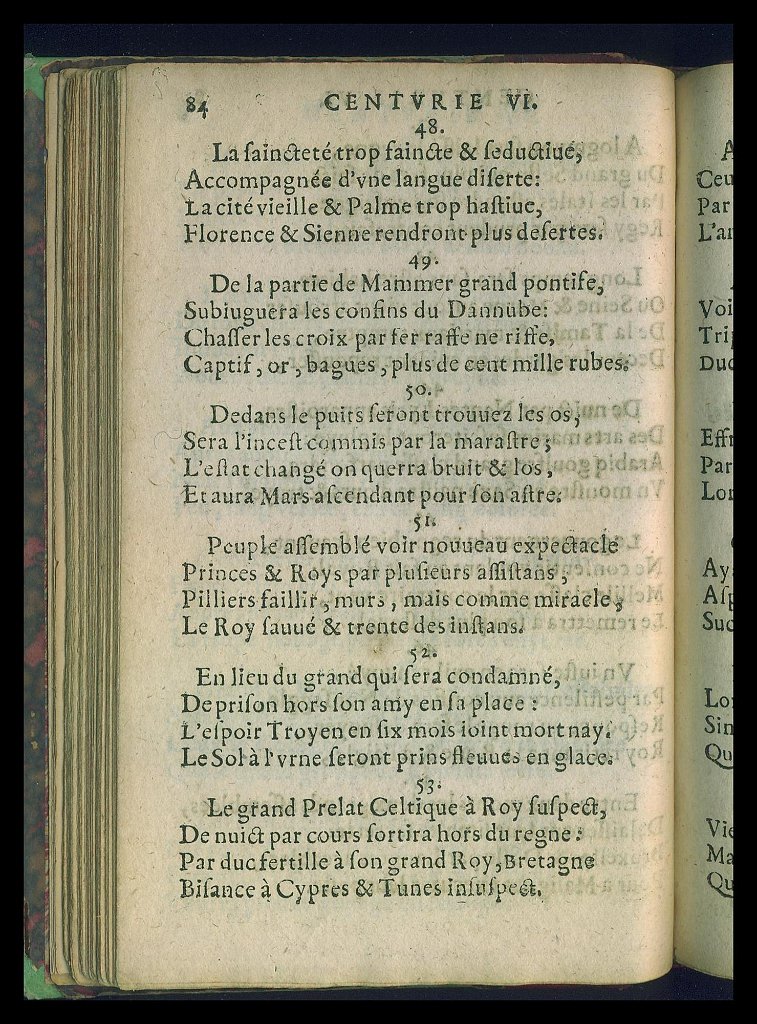 84 CENTVRIE VI.
48.
La ſaincteté trop faincte & ſeductiue,
Accompagnée d'vne langue diſerte:
La cité vieille & Palme trop haſtiue,
Florence & Sienne rendront plus deſertes.
49.
De la partie de Mammer grand pontife,
Subiuguera les confins du Dannube:
Chaſſer les croix par fer raffe ne riffe,
Captif, or, bagues, plus de cent mille rubes.
50.
Dedans le puits ſeront trouuez les os,
Sera l'inceſt commis par la maraſtre;
L'eſtat changé on querra bruit & los,
Et aura Mars aſcendant pour ſon aſtre.
51.
Peuple aſſemblé voir nouueau expectacle
Princes & Roys par pluſieurs aſſiſtans,
Pilliers faillir, murs, mais comme miracle,
Le Roy ſauué & trente des inſtans.
52.
En lieu du grand qui ſera condamné,
De priſon hors ſon amy en ſa place:
L'eſpoir Troyen en ſix mois ioint mort nay.
Le Sol à l'vrne ſeront prins fleuues en glace.
53.
Le grand Prelat Celtique à Roy ſuſpect,
De nuict par cours ſortira hors du regne:
Par duc fertille à ſon grand Roy, Bretagne
Biſance à Cypres & Tunes inſuſpect.
Par
Voi
Lo
Sin
Qu
Vie
Ma
Qu